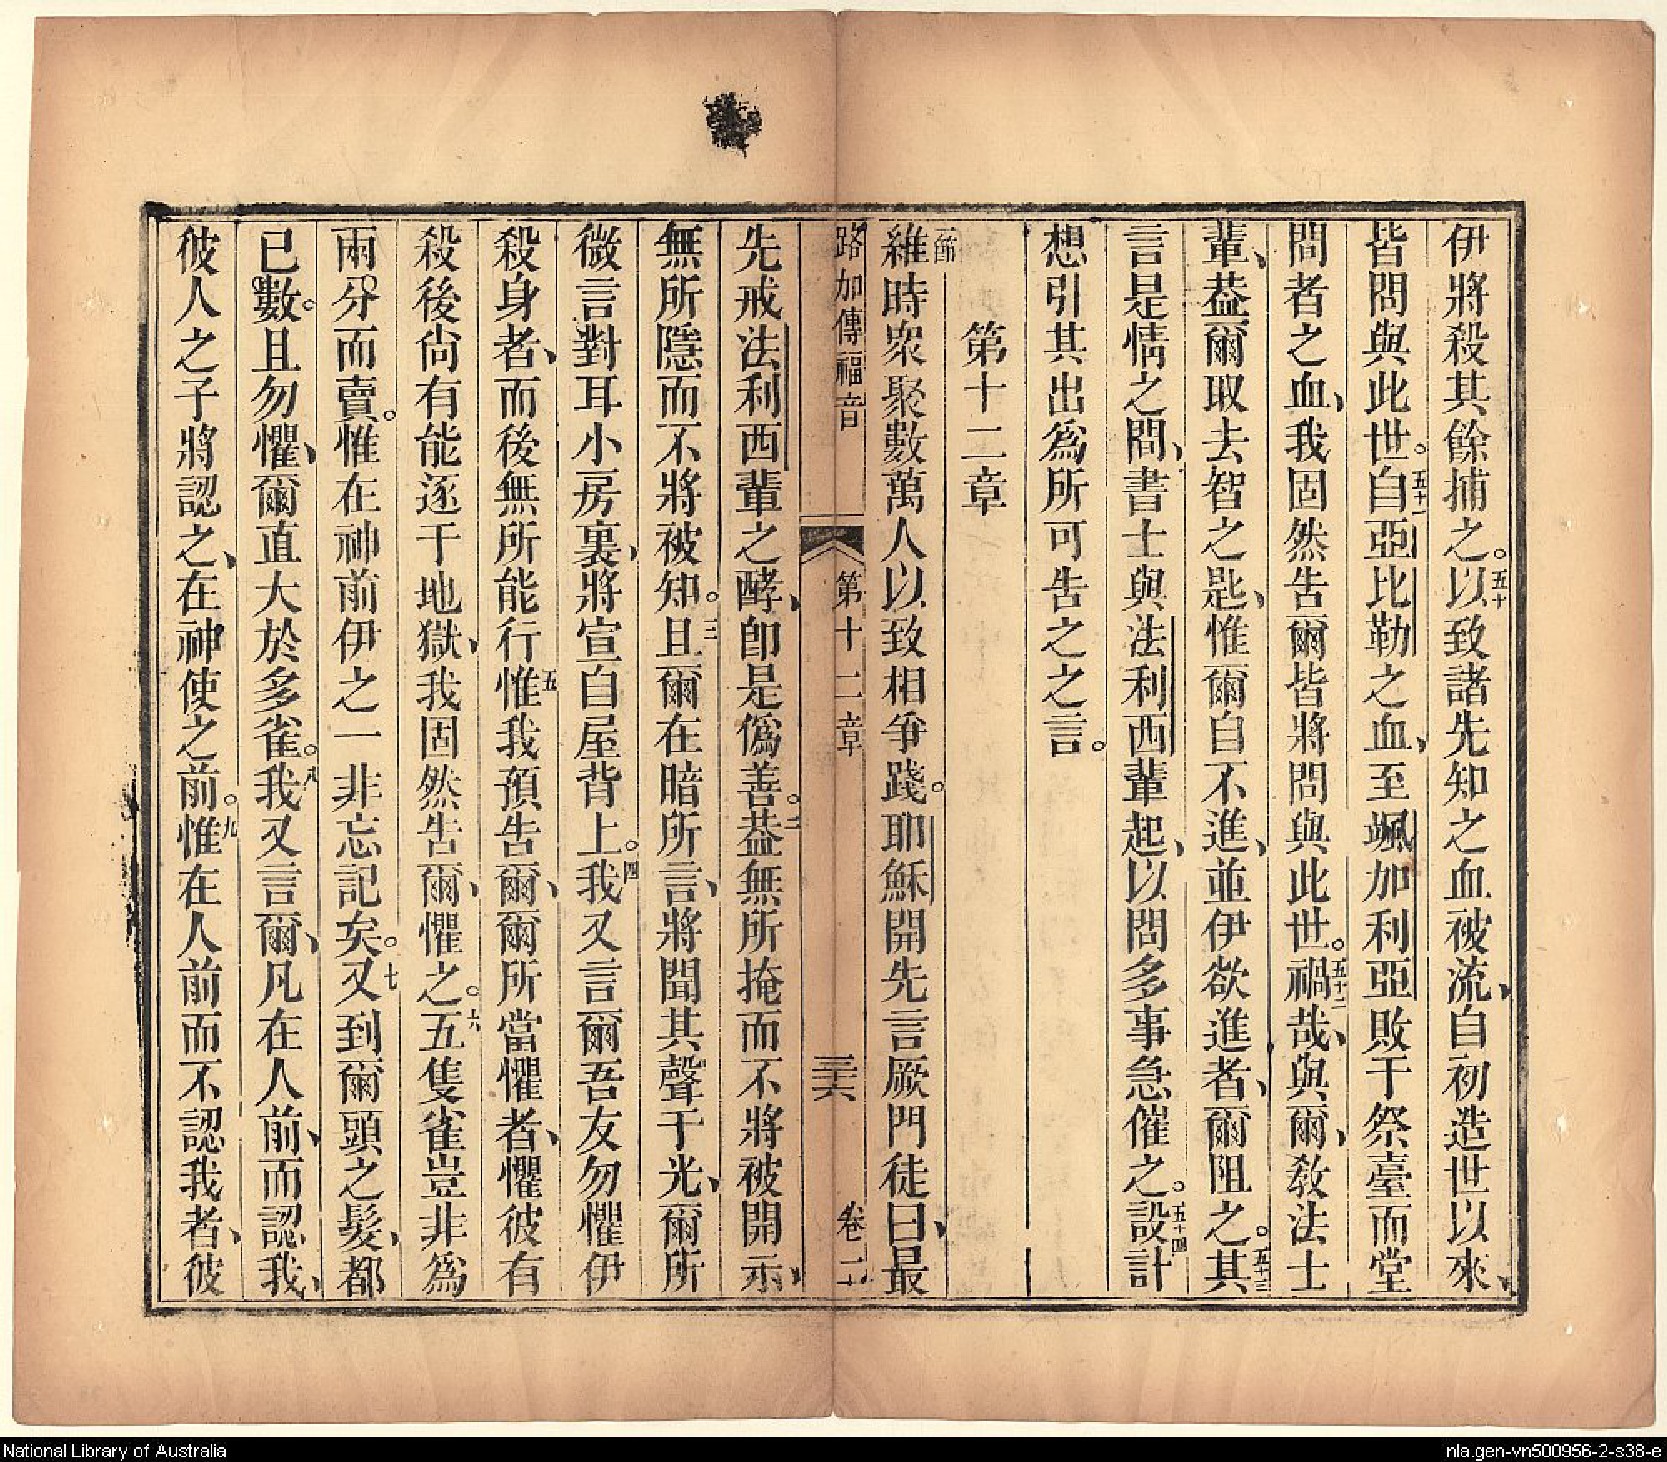 伊將殺其餘捕之。五十以致諸先知之血被流、自初造世以來、
皆問與此世。五十一自亞比勒之血、至颯加利亞敗于祭臺而堂
間者之血、我固然告爾皆將問與此世。五十二禍哉、與爾、教法士
輩、葢爾取去智之匙、惟爾自不進、並伊欲進者、爾阻之。五十三其
言是情之間、書士與法利西輩起、以問多事急催之。五十四設計
想引其出為所可告之之言。
第十二章
一節維時眾聚數萬人以致相爭踐。耶穌開先言厥門徒曰、最
路加傳福音 第十二章 三十六 卷二
先戒法利西輩之酵、即是偽善。二葢無所掩而不將被開示、
無所隱而不將被知。三且爾在暗所言、將聞其聲于光、爾所
微言對耳小房裏、將宣自屋背上。四我又言爾吾友勿懼伊
殺身者、而後無所能行五惟我預告爾、爾所當懼者、懼彼有
殺後尚有能逐于地獄、我固然告爾、懼之。六五隻雀豈非為
兩分而賣。惟在神前伊之一非忘記矣。七又到爾頭之髮、都
已數。且勿懼、爾直大於多雀。八我又言爾、凡在人前、而認我、
彼人之子將認之、在神使之前。九惟在人前而不認我者、彼
National Library of Australia
nla.gen-vn500956-2-s38-e